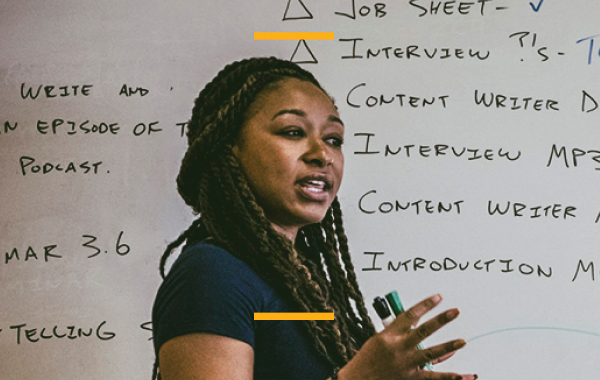 WRITE AND
EPISODE OF
PODCAST.
MAR 3.6
TELLING
JOB SHEET-
INTERVIEW ?!s-
CONTENT WRITER
INTERVIEW MP3
CONTENT WRITER
INTRODUCTION